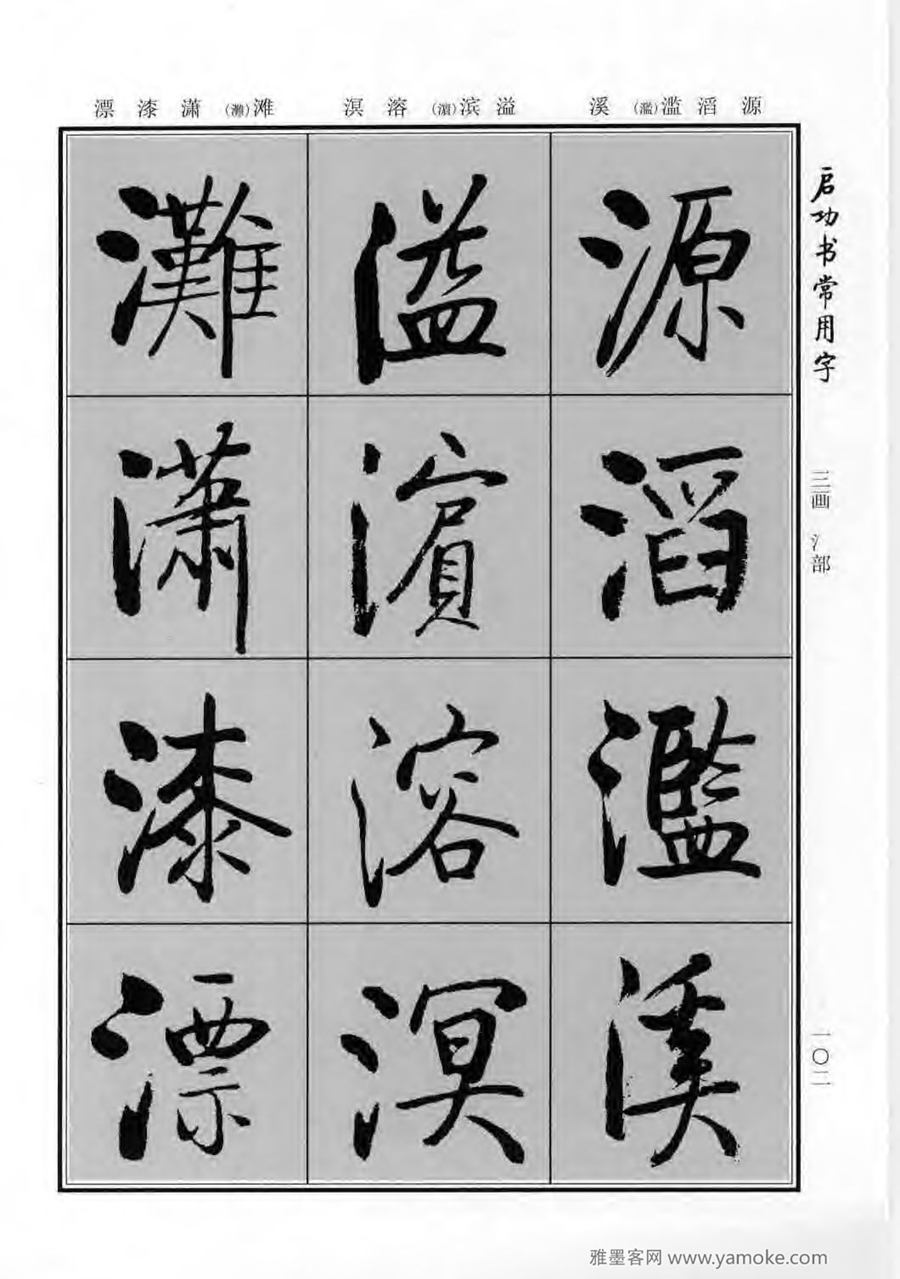 源 滔 滥(濫) 溪
溢 滨(濱) 溶 溟
滩(灘) 潇 漆 漂
启功书常用字
三画 氵部
一〇二
源
滔
濫
溪
溢
濱
溶
溟
灘
瀟
漆
漂
雅墨客网 www.yamoke.com